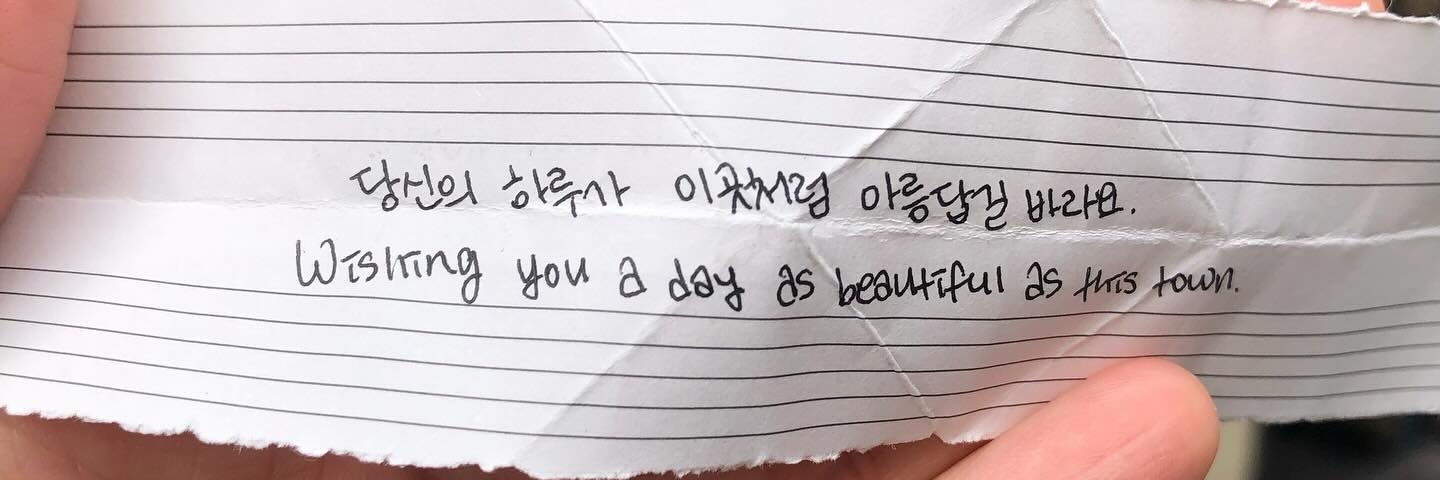 당신의 하루가 이곳처럼 아름답길 바라요.
Wishing you a day as beautiful as this town.